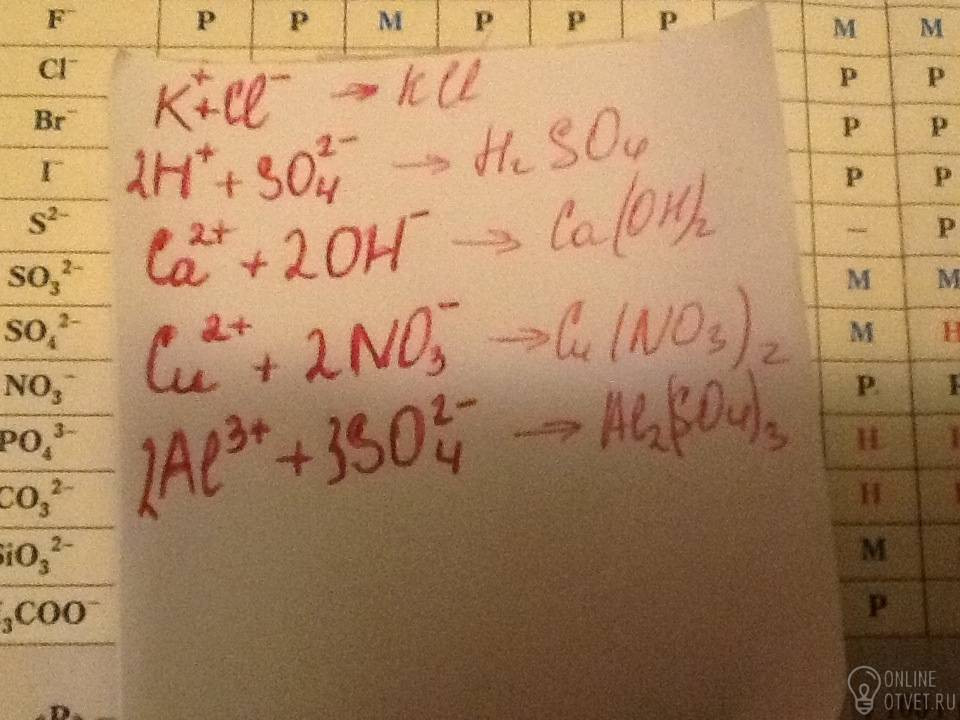 F⁻ Р Р М Р Р Р М М
Cl⁻ Р Р
Br⁻ Р Р
I⁻ Р Р
S²⁻ – Р
SO₃²⁻ М М
SO₄²⁻ М Н
NO₃⁻ Р Р
PO₄³⁻ Н
CO₃²⁻ Н
SiO₃²⁻ М
₃COO⁻ Р
K⁺ + Cl⁻ → KCl
2H⁺ + SO₄²⁻ → H₂SO₄
Ca²⁺ + 2OH⁻ → Ca(OH)₂
Cu²⁺ + 2NO₃⁻ → Cu(NO₃)₂
2Al³⁺ + 3SO₄²⁻ → Al₂(SO₄)₃
ONLINE
OTVET.RU